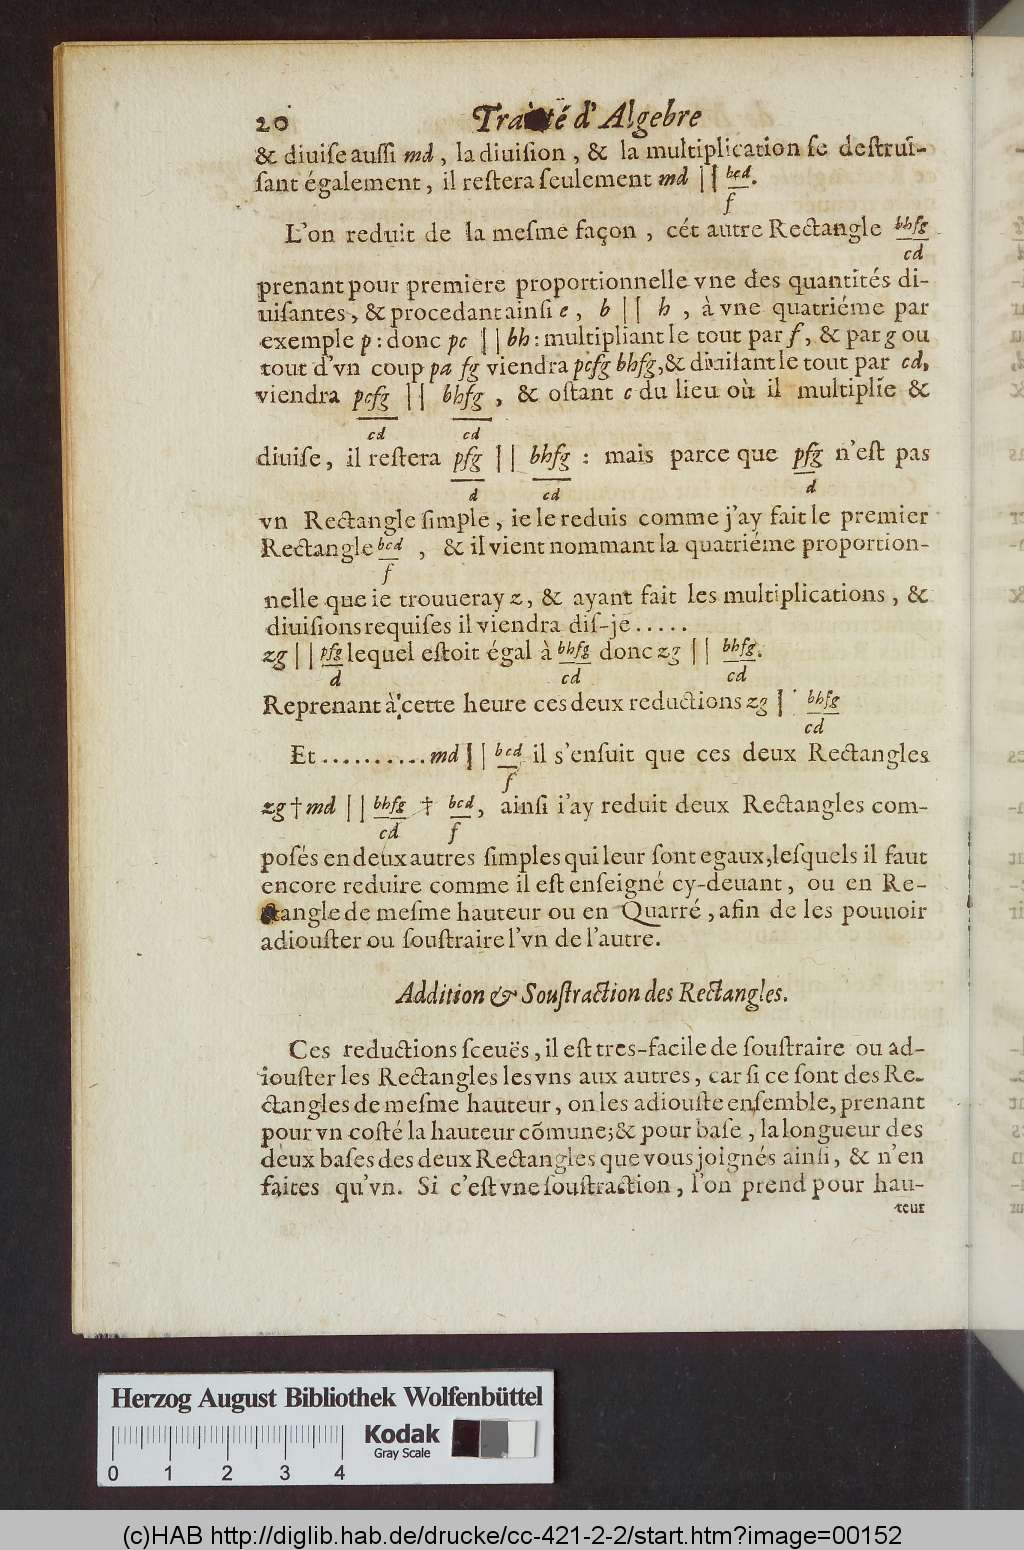 20 Traité d'Algebre
& diuiſe auſſi md, la diuiſion, & la multiplication ſe deſtrui-
ſant également, il reſtera ſeulement md || bcd/f.
L'on reduit de la meſme façon, cét autre Rectangle bhfg/cd
prenant pour premiere proportionnelle vne des quantités di-
uiſantes, & procedant ainſi c, b || h, à vne quatriéme par
exemple p: donc pc || bh: multipliant le tout par f, & par g ou
tout d'vn coup pa fg viendra pcfg bhfg, & diuiſant le tout par cd,
viendra pcfg/cd || bhfg/cd, & oſtant c du lieu où il multiplie &
diuiſe, il reſtera pfg/d || bhfg/cd: mais parce que pfg/d n'eſt pas
vn Rectangle ſimple, ie le reduis comme j'ay fait le premier
Rectangle bcd/f, & il vient nommant la quatriéme proportion-
nelle que ie trouueray z, & ayant fait les multiplications, &
diuiſions requiſes il viendra diſ-je.....
zg || pfg/d lequel eſtoit égal à bhfg/cd donc zg || bhfg/cd.
Reprenant à cette heure ces deux reductions zg | bhfg/cd
Et...........md || bcd/f il s'enſuit que ces deux Rectangles
zg † md || bhfg/cd † bcd/f, ainſi i'ay reduit deux Rectangles com-
poſés en deux autres ſimples qui leur ſont egaux, leſquels il faut
encore reduire comme il eſt enſeigné cy-deuant, ou en Re-
ctangle de meſme hauteur ou en Quarré, afin de les pouuoir
adiouſter ou ſouſtraire l'vn de l'autre.
Addition & Souſtraction des Rectangles.
Ces reductions ſceuës, il eſt tres-facile de ſouſtraire ou ad-
iouſter les Rectangles les vns aux autres, car ſi ce ſont des Re-
ctangles de meſme hauteur, on les adiouſte enſemble, prenant
pour vn coſté la hauteur cõmune; & pour baſe, la longueur des
deux baſes des deux Rectangles que vous joignés ainſi, & n'en
faites qu'vn. Si c'eſt vne ſouſtraction, l'on prend pour hau-
teur
Herzog August Bibliothek Wolfenbüttel
Kodak
Gray Scale
0 1 2 3 4
(c)HAB http://diglib.hab.de/drucke/cc-421-2-2/start.htm?image=00152